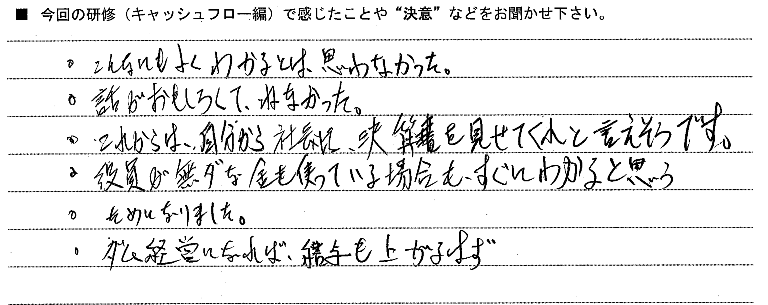 ■ 今回の研修（キャッシュフロー編）で感じたことや“決意”などをお聞かせ下さい。
○ こんなにもよくわかるとは、思わなかった。
○ 話がおもしろくて、ねなかった。
○ これからは、自分から社長に、決算書を見せてくれと言えそうです。
○ 役員が無ダな金を使っている場合も、すぐにわかると思う
○ ためになりました。
・ ダム経営になれば、給与も上がるはず